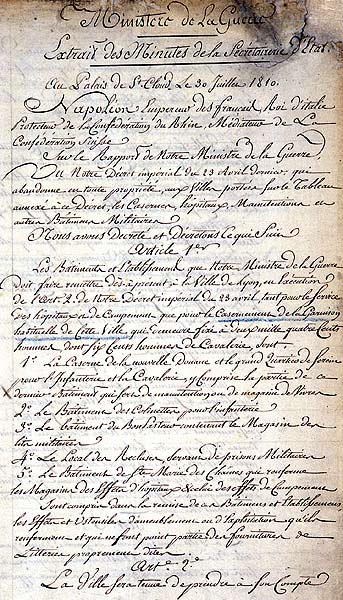 Ministère de La Guerre
Extrait des Minutes de la Secrétairerie d'Etat.
Au Palais de St. Cloud Le 30 Juillet 1810.
Napoléon Empereur des français, Roi d'italie
Protecteur de la Confédération du Rhin, Médiateur de La
Confédération Suisse
Sur le Rapport de Notre Ministre de la Guerre,
Vu Notre Décret impérial du 23 Avril dernier, qui
abandonne en toute propriété, aux Villes portées sur le Tableau
annexé à ce Décret, les Casernes, hôpitaux, Manutentions et
autres Bâtimens Militaires
Nous avons Décrété et Décrétons Ce que Suit
Article 1er
Les Bâtiments et Etablissements que Notre Ministre de la Guerre
doit faire remettre dès à présent à la Ville de Lyon, en Exécution
de l'art. 2. de Notre Décret impérial du 23 avril, tant pour le Service
des hôpitaux et de Campement que pour le Casernement de la Garnison
habituelle de Cette Ville, qui demeure fixé à deux mille quatre Cents
hommes, dont Sept Cents hommes de Cavalerie, Sont
1° La Caserne de la nouvelle Douane et le grand Quartier de Serin
pour l'Infanterie et la Cavalerie, y Comprise la partie de
dernier Bâtiment qui sert de manutention ou de magasin de Vivres
2° Le Bâtiment des Colinettes pour l'infanterie
3° Le bâtiment du Bon Pasteur contenant le Magasin des
lits militaires
4° Le Local des Recluses, servant de prisons Militaires
5° Le Bâtiment de Ste Marie des Chaînes qui renferme
les Magasins des Effets d'hôpitaux & celui des effets de Campement
Sont compris dans la remise de ces Bâtimens et Etablissements
les Effets et Ustensiles d'ameublement ou d'exploitation qu'ils
renferment et qui ne font point partie des fournitures de
Litteries proprement dites.
Arte 2e
La Ville sera tenue de prendre à son Compte